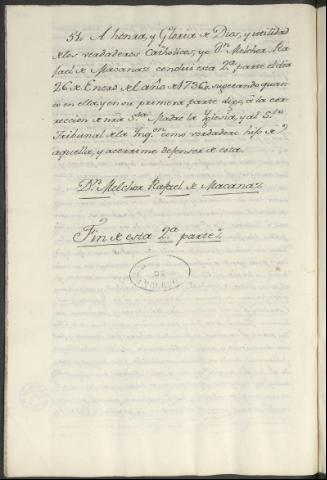 51. A honra, y Gloria de Dios, y utilidad
de los verdaderos Catholicos, yo Dn. Melchor Ra-
fael de Macanaz conclui esta 2a. parte el dia
26 de Enero del año de 1736, sugetando quan-
to en ella, y en su primera parte digo, á la cor-
reccion de nra Sta. Madre la Yglesia, y al Sto.
Tribunal de la Ingon. como verdadero hijo de
aquella, y acerrimo defensor de esta.
Dn. Melchor Rafael de Macanaz
Fin de esta 2a. parte
DE